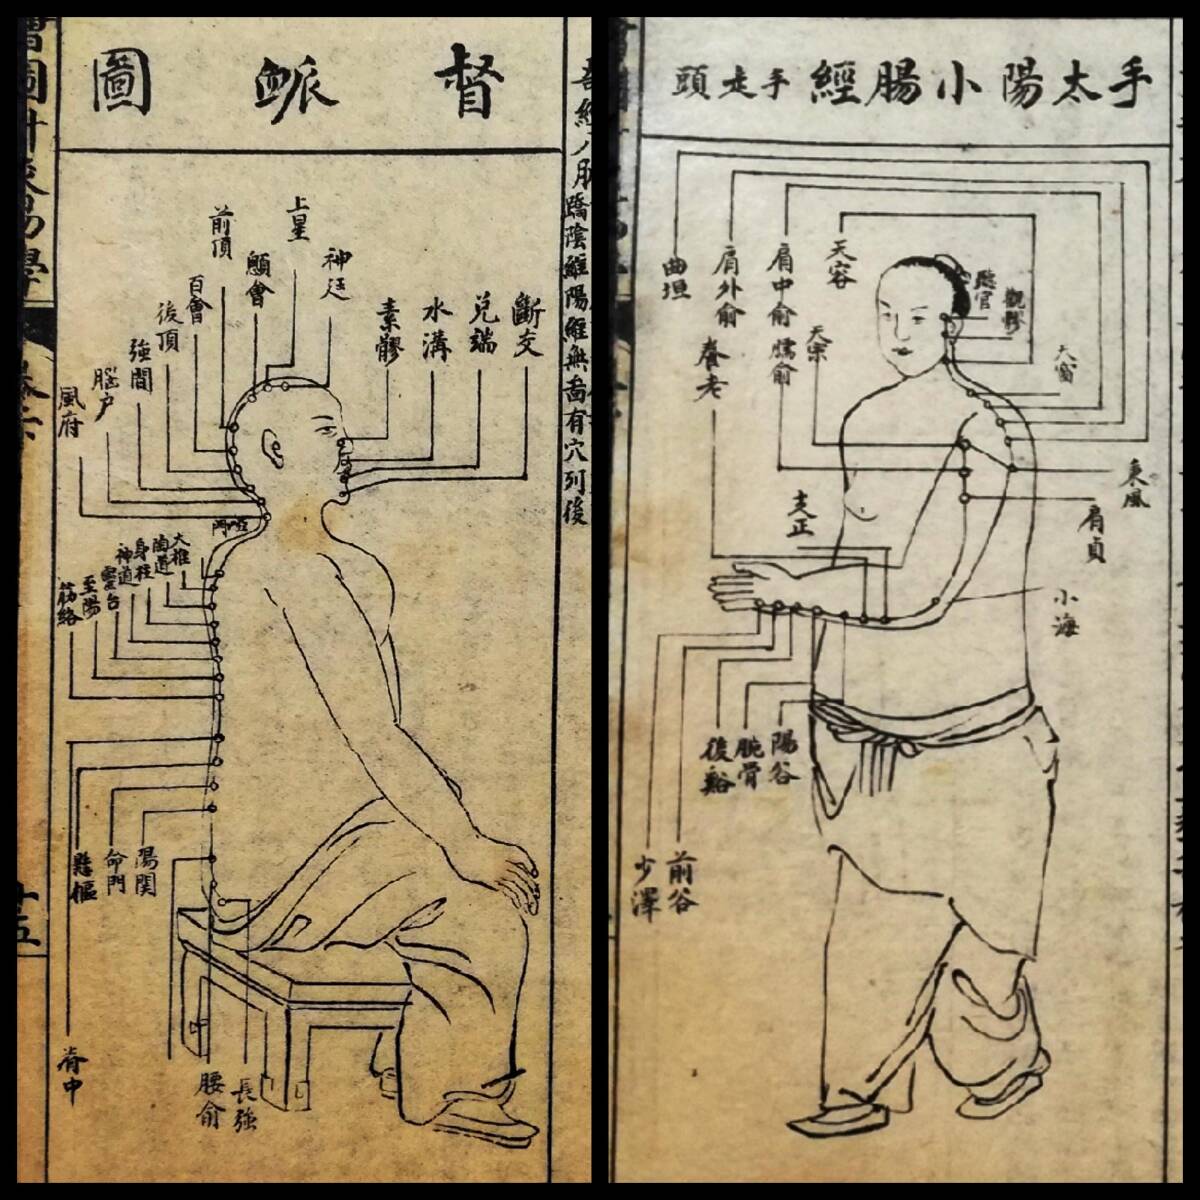 督脈圖
上星
神廷
前頂
顖會
百會
後頂
強間
腦户
風府
素髎
水溝
兌端
斷交
瘂門
大椎
陶道
身柱
神道
靈台
至陽
筋絡
懸樞
命門
陽関
脊中
腰俞
長強
蹻陰維陽維無啚有穴列後
十五
手太陽小腸經手走頭
曲垣
肩外俞
肩中俞
天容
聽官
觀髎
天窗
天宗
臑俞
養老
支正
秉風
肩貞
小海
後谿
腕骨
陽谷
少澤
前谷